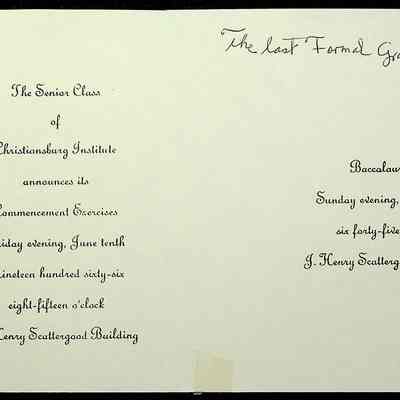 The last Formal Gra
The Senior Class
of
Christiansburg Institute
announces its
Commencement Exercises
iday evening, June tenth
nineteen hundred sixty-six
eight-fifteen o'clock
Henry Scattergood Building
Baccalau
Sunday evening,
six forty-five
J. Henry Scatterg